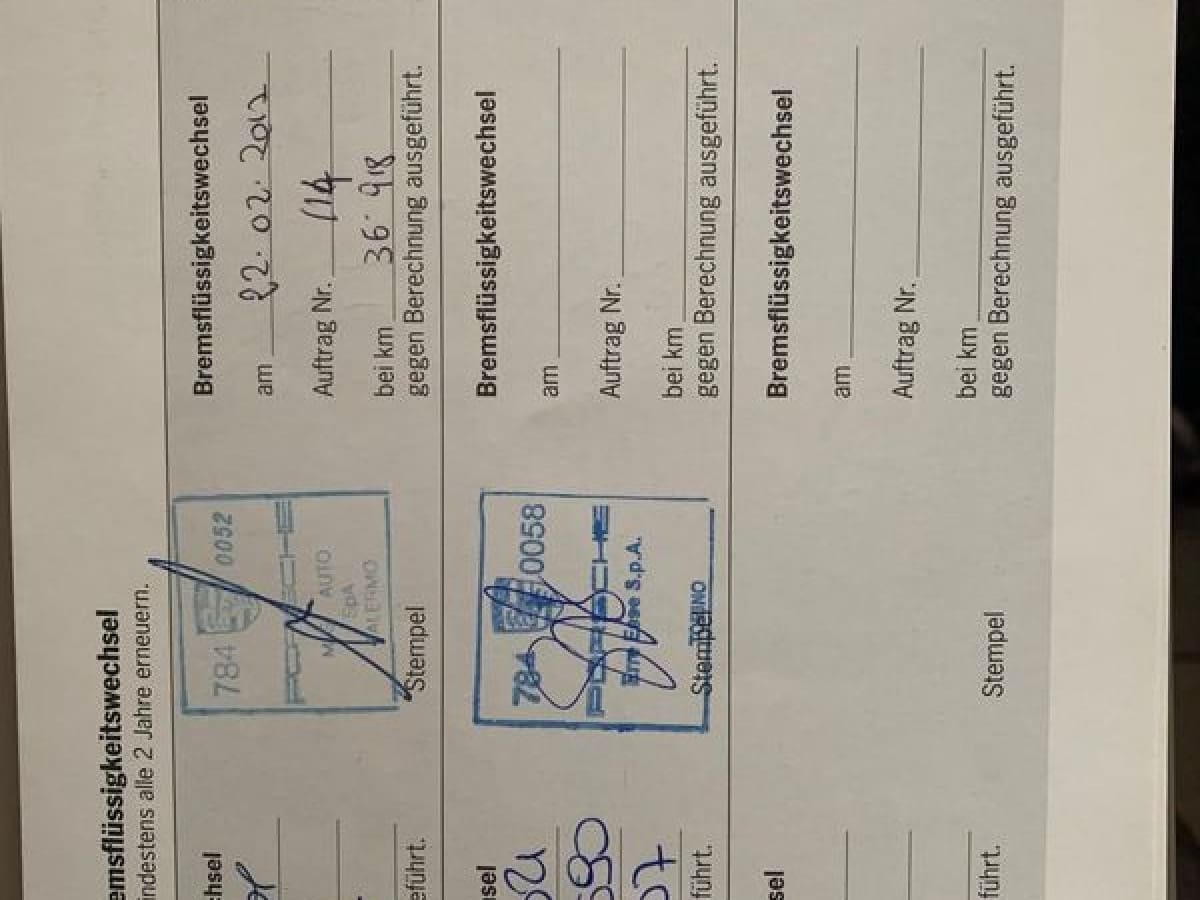 emsflüssigkeitswechsel
indestens alle 2 Jahre erneuern.
chsel
eführt.
784 0052
PORSCHE
AUTO
SpA
ALERMO
Stempel
Bremsflüssigkeitswechsel
am 22.02.2017
Auftrag Nr. 114
bei km 36.918
gegen Berechnung ausgeführt.
sel
590
07
führt.
784 0058
PORSCHE
Esse S.p.A.
Stempel
Bremsflüssigkeitswechsel
am
Auftrag Nr.
bei km
gegen Berechnung ausgeführt.
sel
führt.
Stempel
Bremsflüssigkeitswechsel
am
Auftrag Nr.
bei km
gegen Berechnung ausgeführt.